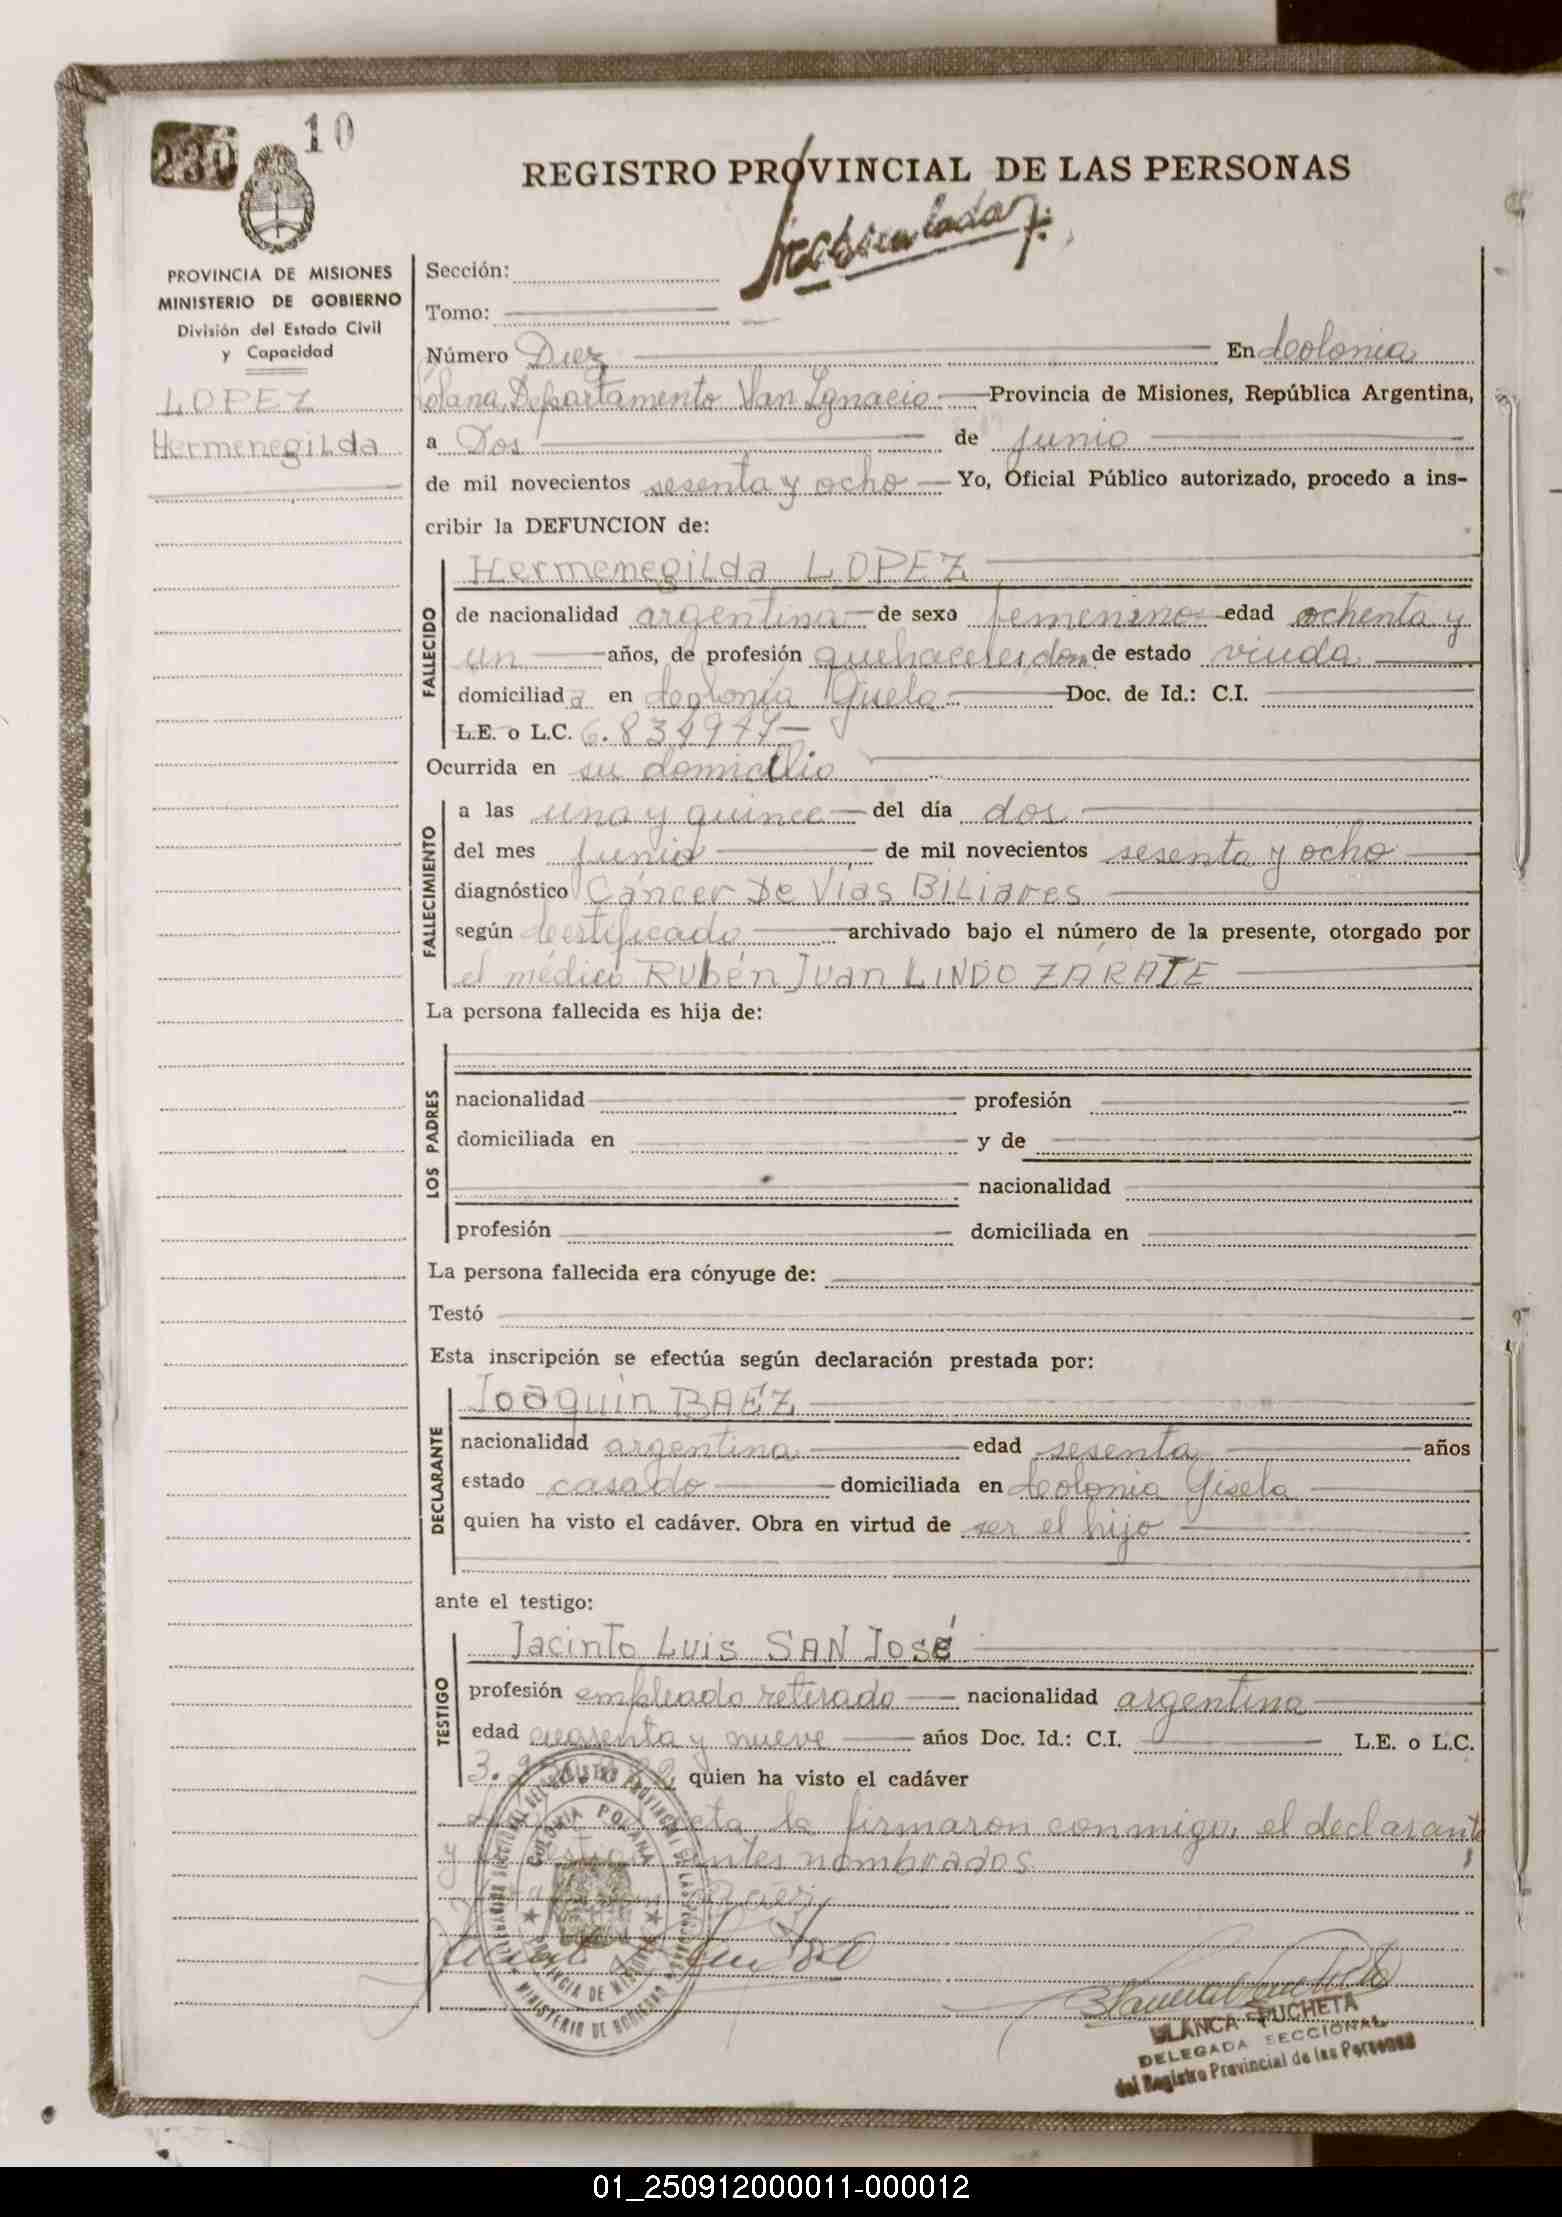 230
10
REGISTRO PROVINCIAL DE LAS PERSONAS
PROVINCIA DE MISIONES
MINISTERIO DE GOBIERNO
División del Estado Civil
y Capacidad
LOPEZ
Hermenegilda
Sección:
Tomo:
Número Diez En Colonia
Polana, Departamento San Ignacio Provincia de Misiones, República Argentina,
a Dos de junio
de mil novecientos sesenta y ocho Yo, Oficial Público autorizado, procedo a ins-
cribir la DEFUNCION de:
Hermenegilda LOPEZ
FALLECIDO
de nacionalidad argentina de sexo femenino edad ochenta y
un años, de profesión quehaceres dom de estado viuda
domiciliada en Colonia Doc. de Id.: C.I.
L.E. o L.C.
Ocurrida en su domicilio
FALLECIMIENTO
a las una y quince del día dos
del mes junio de mil novecientos sesenta y ocho
diagnóstico Cáncer De Vias Biliares
según Certificado archivado bajo el número de la presente, otorgado por
el médico Rubén Juan LINDO ZARATE
La persona fallecida es hija de:
LOS PADRES
nacionalidad profesión
domiciliada en y de
nacionalidad
profesión domiciliada en
La persona fallecida era cónyuge de:
Testó
Esta inscripción se efectúa según declaración prestada por:
DECLARANTE
Joaquín BAEZ
nacionalidad argentina edad sesenta años
estado casado domiciliada en Colonia Gisela
quien ha visto el cadáver. Obra en virtud de ser el hijo
ante el testigo:
TESTIGO
Jacinto Luis SAN José
profesión empleado retirado nacionalidad argentina
edad cuarenta y nueve años Doc. Id.: C.I. L.E. o L.C.
quien ha visto el cadáver
acta la firmaron conmigo, el declarante
y testigo antes nombrados
COLONIA POLANA
PROVINCIA DE MISIONES
MINISTERIO DE GOBIERNO
BLANCA PUCHETA
DELEGADA SECCIONAL
del Registro Provincial de las Personas
01_250912000011-000012